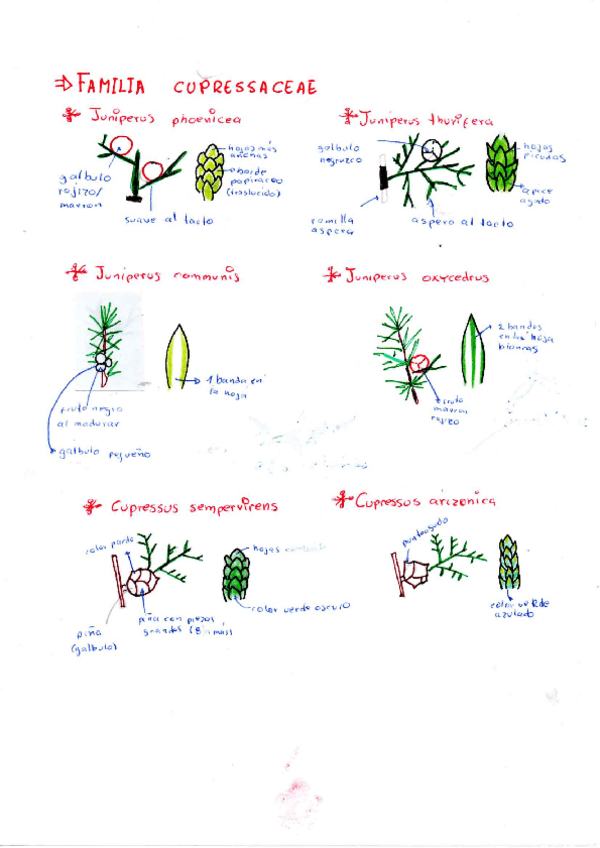 ⇒ FAMILIA CUPRESSACEAE
Juniperus phoenicea
galbulo
rojizo/
marron
suave al tacto
hojas más
anchas
borde
papiraceo
(traslucido)
Juniperus thurifera
galbulo
negruzco
ramilla
aspera
aspero al tacto
hojas
picudas
apice
agudo
Juniperus communis
fruto negro
al madurar
galbulo pequeño
1 banda en
la hoja
Juniperus oxycedrus
fruto
marron
rojizo
2 bandas
en la hoja
blancas
Cupressus sempervirens
color pardo
piña
(galbulo)
piña con piezas
grandes (8 o más)
hojas
color verde oscuro
Cupressus arizonica
puntiagudo
color verde
azulado